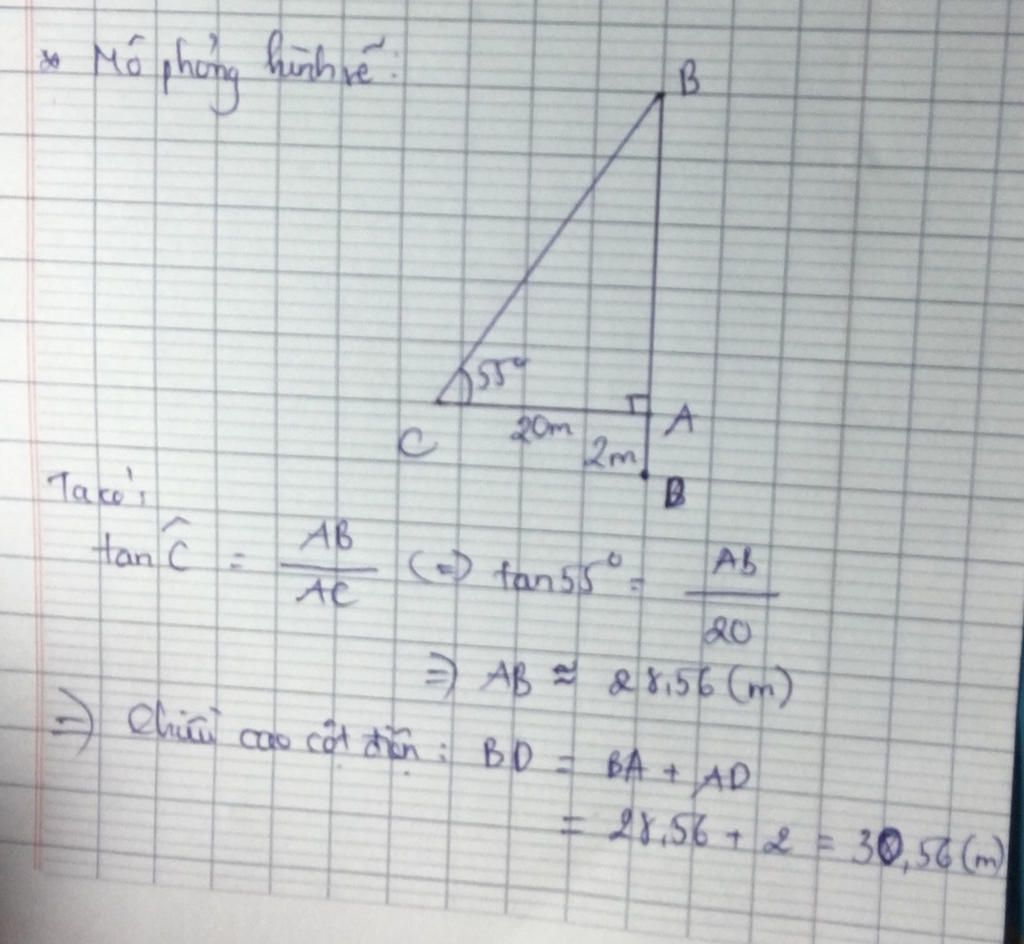 * Mô phỏng hình vẽ:
B
55°
20m
A
C
2m
B
Ta có:
tan Ĉ = AB/AC (=) tan55° = AB/20
=) AB ≈ 28,56 (m)
=) Chiều cao cột điện: BD = BA + AD
= 28,56 + 2 = 30,56 (m)